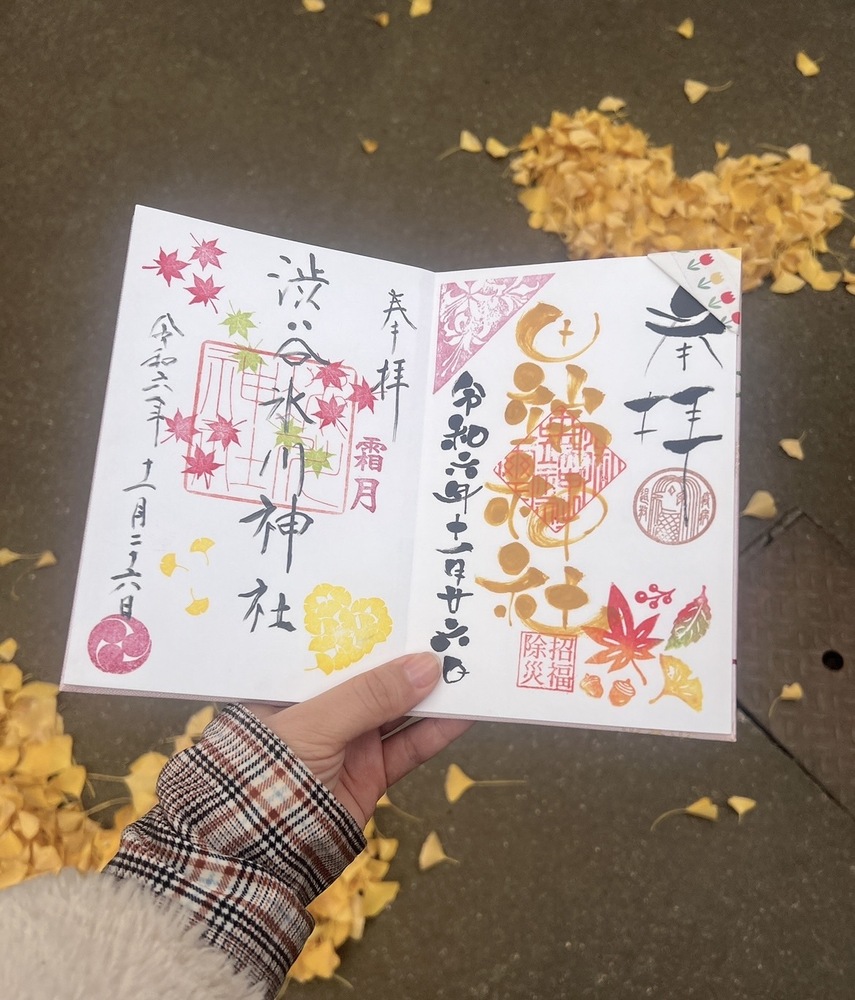 奉拝
神社
招福
除災
令和六年十一月廿六日
奉拝
霜月
渋谷氷川神社
令和六年十一月二十六日